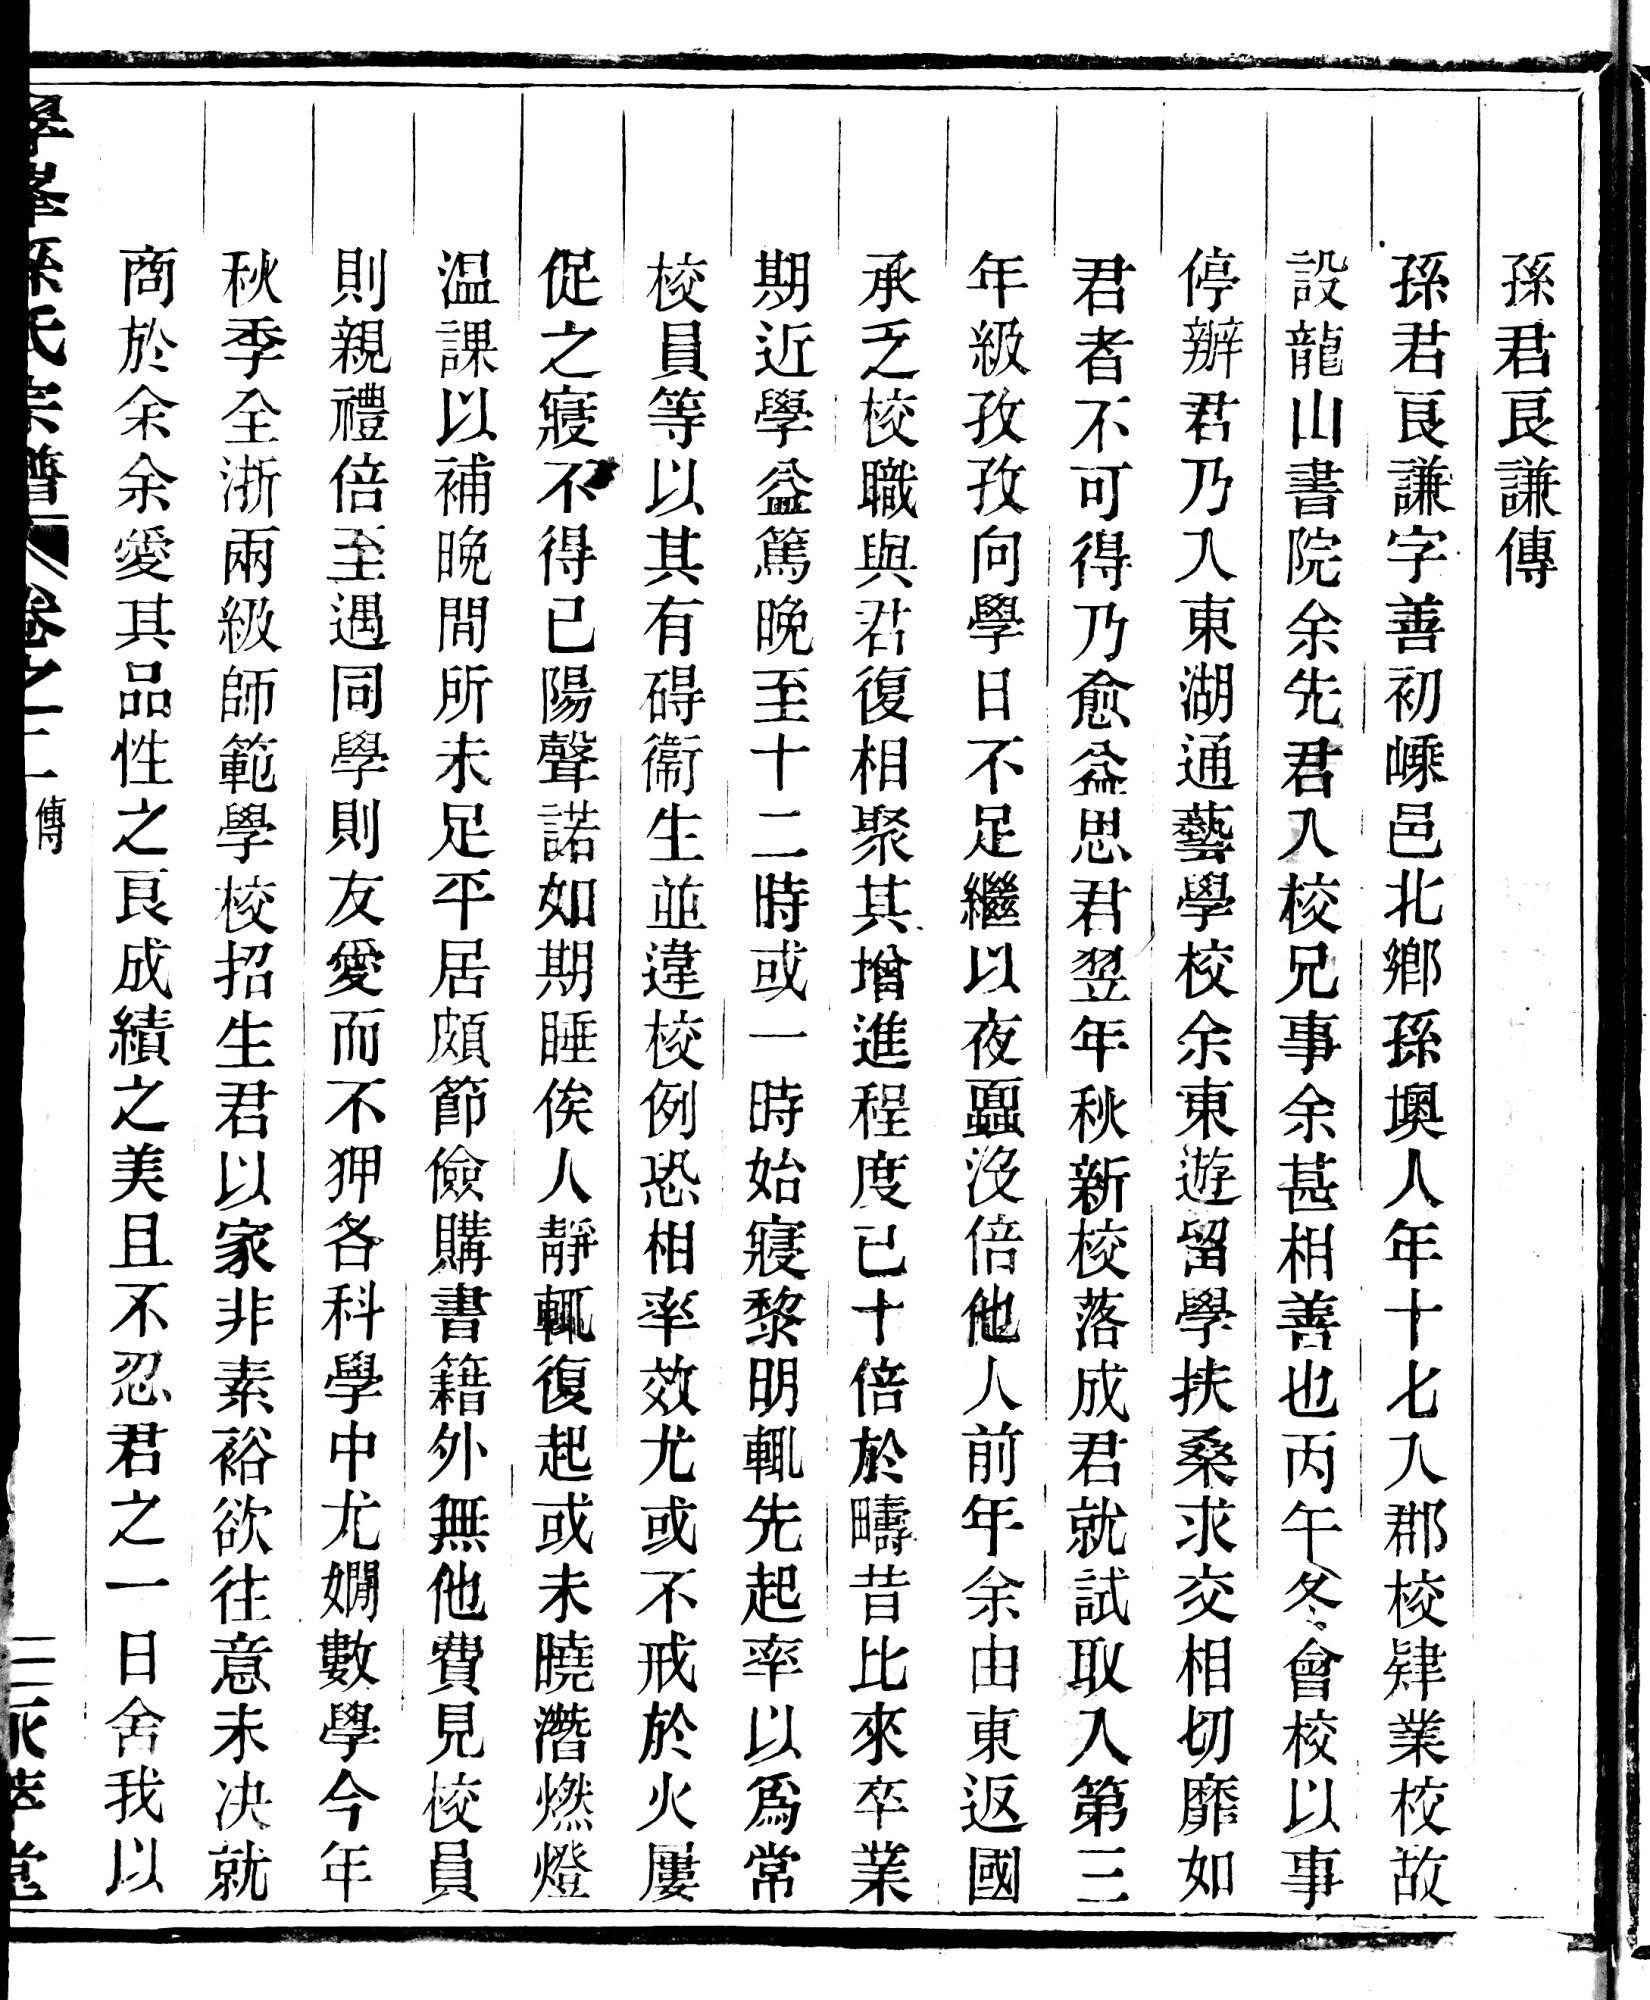 孫君良謙傳
孫君良謙字善初嵊邑北鄉孫墺人年十七入郡校肄業校故
設龍山書院余先君入校兄事余甚相善也丙午冬會校以事
停辦君乃入東湖通藝學校余東遊留學扶桑求交相切靡如
君者不可得乃愈益思君君翌年秋新校落成君就試取入第三
年級孜孜向學日不足繼以夜蝨沒倍他人前年余由東返國
承乏校職與君復相聚其增進程度已十倍於疇昔比來卒業
期近學益篤晚至十二時或一時始寢黎明輒先起率以爲常
校員等以其有碍衞生並違校例恐相率效尤或不戒於火屢
促之寢不得已陽聲諾如期睡俟人靜輒復起或未曉潛燃燈
温課以補晚間所未足平居頗節儉購書籍外無他費見校員
則親禮倍至遇同學則友愛而不狎各科學中尤嫺數學今年
秋季全浙兩級師範學校招生君以家非素裕欲往意未决就
商於余余愛其品性之良成績之美且不忍君之一日舍我以
孫氏宗譜 卷之二 傳 三 永萃堂